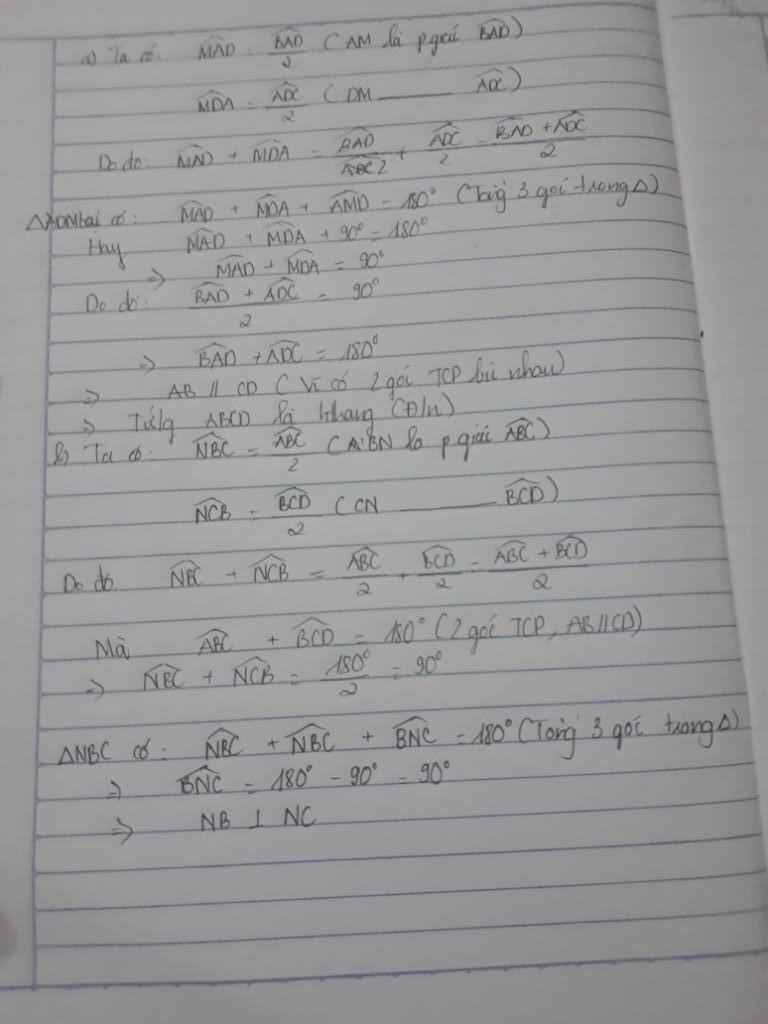 a) Ta có: MAD = BAD/2 (AM là p giác BAD)
MDA = ADC/2 (DM ——— ADC)
Do đó: MAD + MDA = BAD/2 + ADC/2 = BAD + ADC/2
có: MAD + MDA + AMD = 180° (Tổng 3 góc trong Δ)
Hay MAD + MDA + 90° = 180°
⇒ MAD + MDA = 90°
Do đó: BAD + ADC/2 = 90°
⇒ BAD + ADC = 180°
⇒ AB // CD (Vì có 2 góc TCP bù nhau)
⇒ Tứ/g ABCD là hthang (Đ/n)
b) Ta có: NBC = ABC/2 (BN là p giác ABC)
NCB = BCD/2 (CN ——— BCD)
Do đó: NBC + NCB = ABC/2 + BCD/2 = ABC + BCD/2
Mà ABC + BCD = 180° (2 góc TCP, AB//CD)
⇒ NBC + NCB = 180°/2 = 90°
ΔNBC có: NBC + NBC + BNC = 180° (Tổng 3 góc trong Δ)
⇒ BNC = 180° - 90° = 90°
⇒ NB ⊥ NC